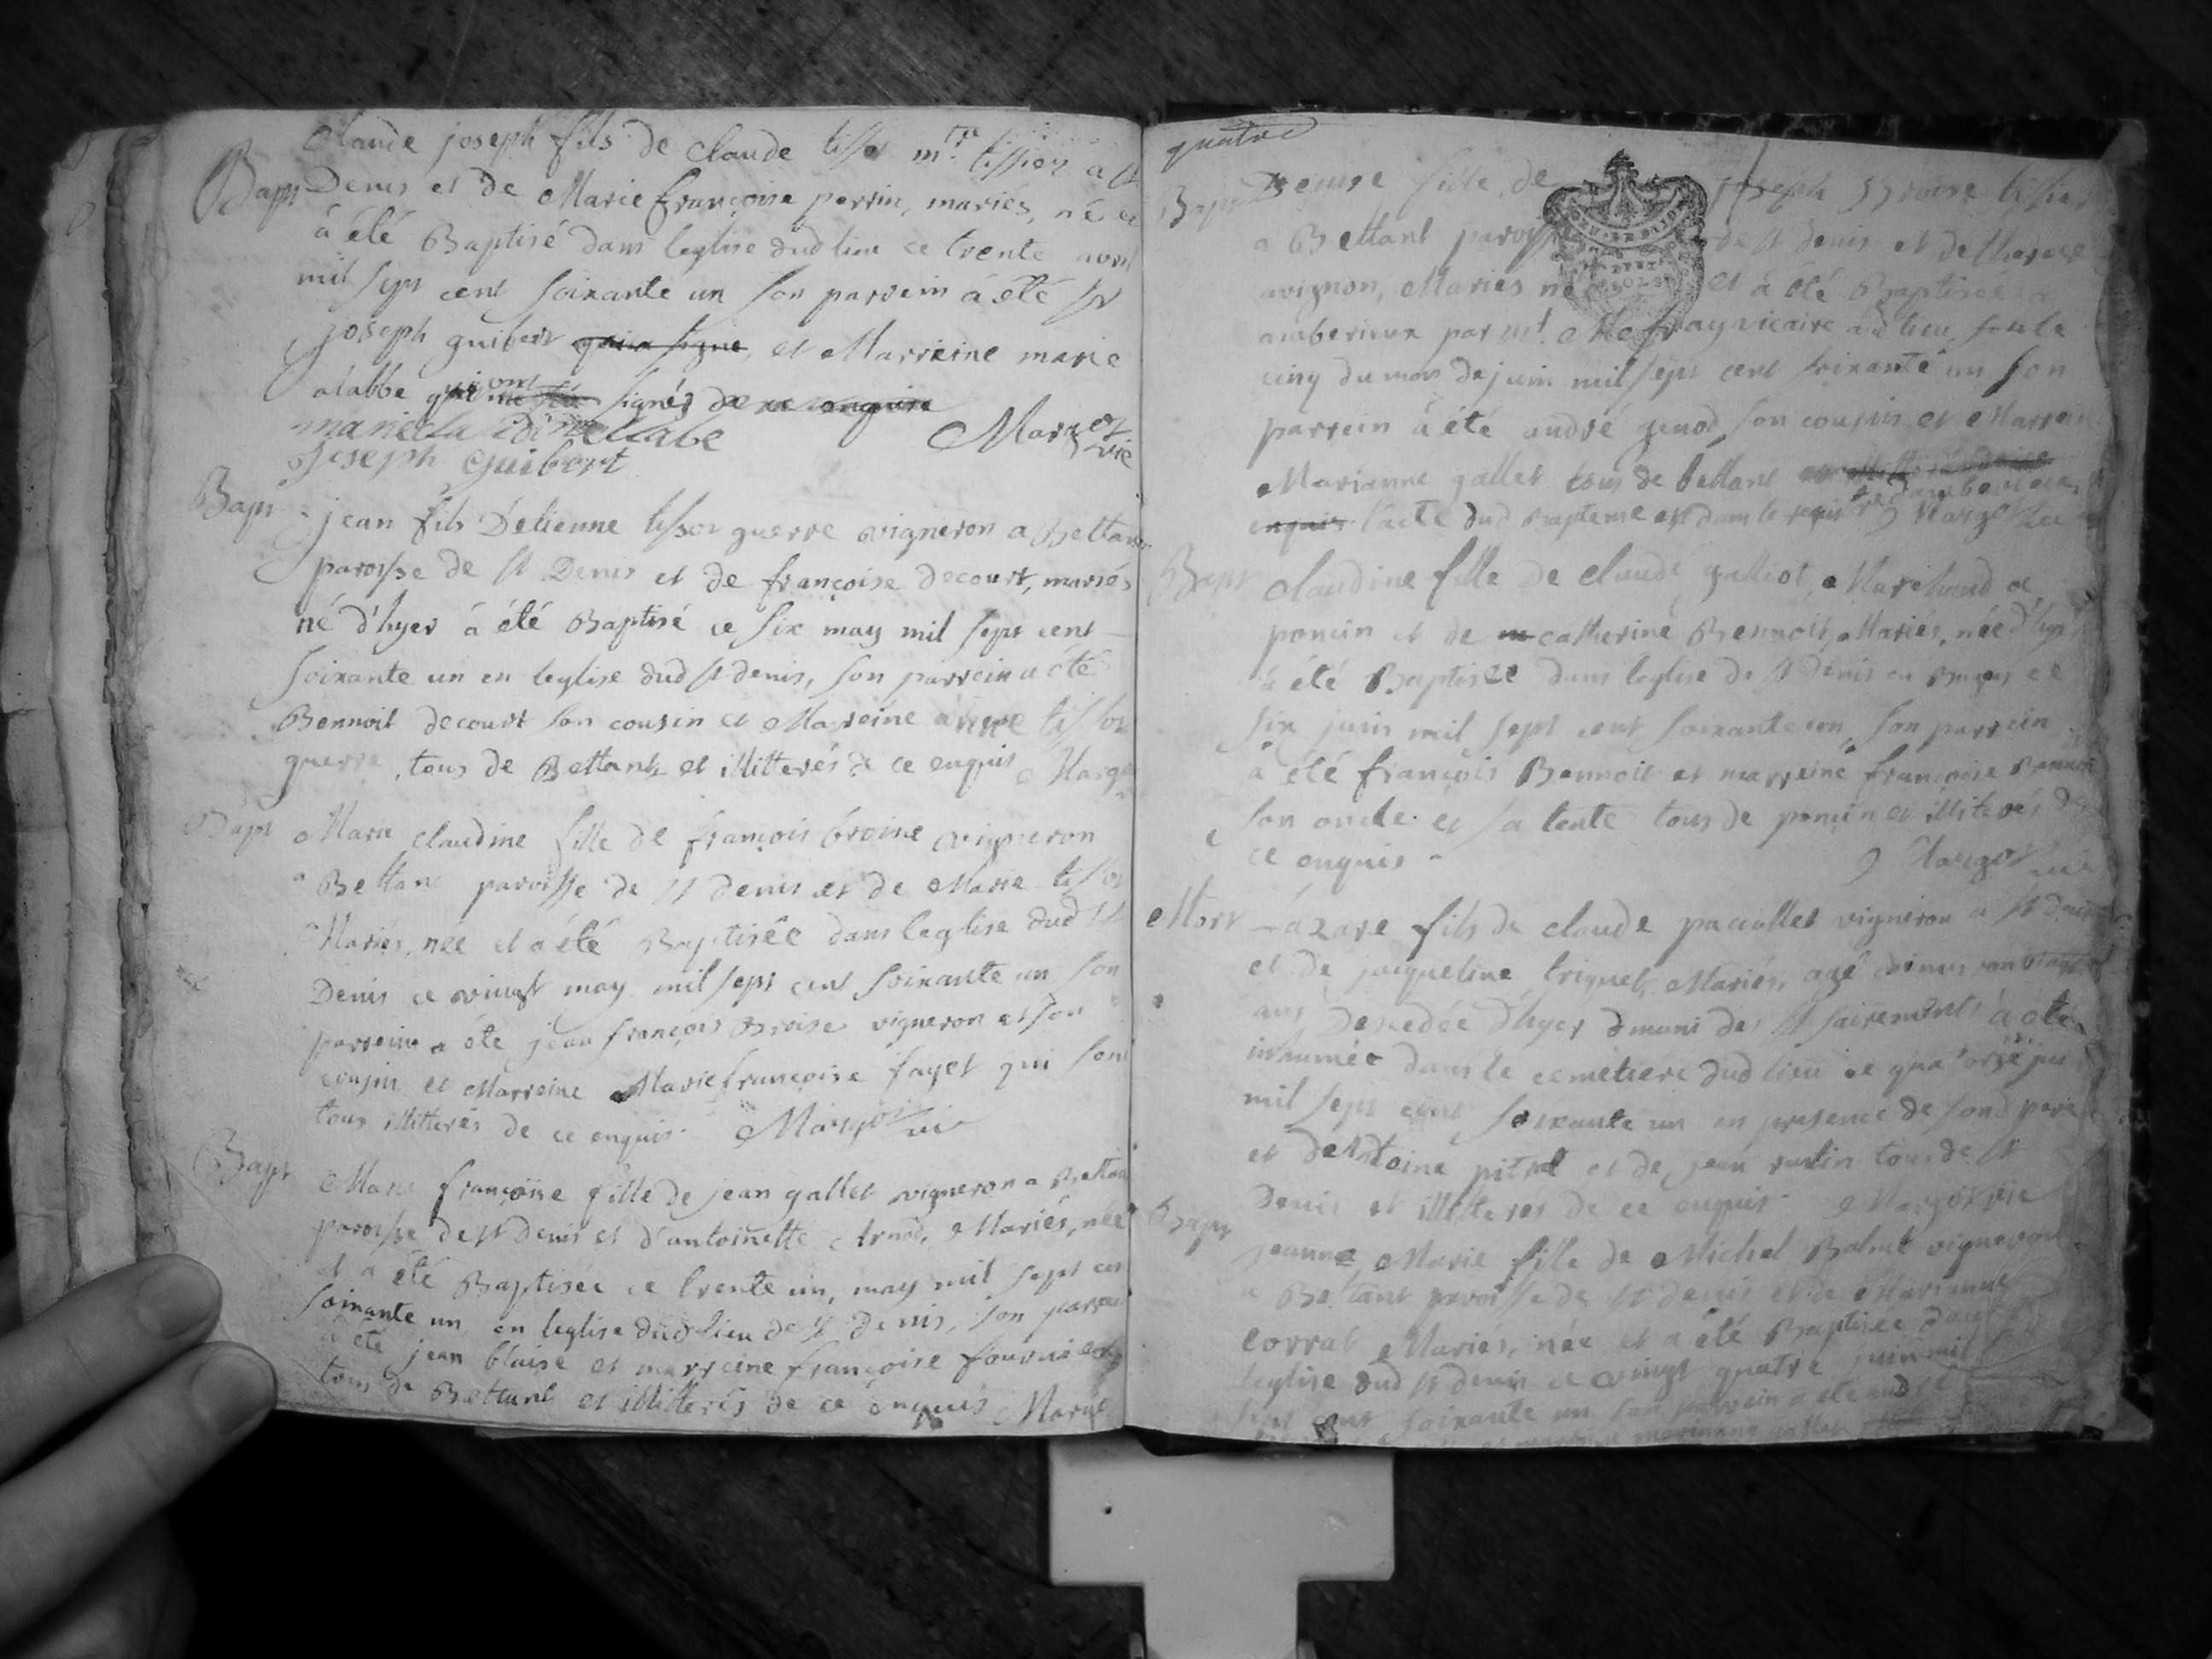 Claude joseph fils de Claude tissot m.tre tissier a st
Bapt Denis et de Marie françoise perrin, mariés, né et
à été Baptisé dans leglise dud lieu ce trente avril
mil sept cent soixante un son parrein à été sr
joseph guibert qui a signé, et Marreine marie
alabbé qui ont signés de ce enquise
Joseph Guibert
Margot vic
Bapt jean fils D'etienne tissot guerre vigneron a Bettant
paroisse de st Denis et de françoise decourt, mariés
né d'hyer à été Baptisé ce six may mil sept cent
soixante un en leglise dud st denis, son parrein a été
Bennoit decourt son cousin et Mareine tissot
guerre, tous de Bettant et illitterés de ce enquis Margot
Bapt Marie claudine fille de françois broise vigneron
a Bettant paroisse de st denis et de Marie tissot
Mariés, née et a été Baptisée dans leglise dud st
Denis ce vingt may mil sept cent soixante un son
parrein a été jean françois Broise vigneron et son
cousin et Marreine Marie françoise fayet qui sont
tous illitterés de ce enquis. Margot vic
Bapt Marie françoise fille de jean gallet vigneron a Bettant
paroisse de st denis et d'antoinette Arnod, Mariés, née
et a été Baptisée ce trente un, may mil sept cen
soixante un, en leglise dud lieu de st denis, son parrein
à été jean blaise et marreine françoise fournier
tous de Bettant et illitterés de ce enquis Margot
quatre
Bapt Denise fille de joseph Broise tissier
a Bettant paroisse de st denis et de therese
avignon, Mariés née et à été Baptisée a
amberieux par mt. vicaire dud lieu, soub le
cinq du mois de juin mil sept cent soixante un son
parrein à été andré genod son cousin et Marreine
Marianne gallet tous de bettant
enquis l'acte dud Bapteme est dans le registre d'amberieux, Margot vic
Bapt Claudine fille de claude galliot, Marchand a
poncin et de catherine Bennoit, Mariés, née d'hyer
à été Baptisée dans leglise de st Denis en Bugey ce
six juin mil sept cent soixante un, son parrein
à été françois Bennoit et marreine françoise Bennoit
son oncle et sa tante tous de poncin et illiterés de
ce enquis - Margot vic
Mort Lazare fils de claude pacallet vigneron a st Denis
et de jacqueline triquet, Mariés, agé d'environ vingt
ans Decedée d'hyer muni des st sacrements à été
inhumée dans le cemetiere dud lieu ce quatorze juin
mil sept cent soixante un en presence de sond pere
et de Antoine pitral et de jean rustin tous de st
Denis et illiteres de ce enquis. Margot vic
Bapt jeanne Marie fille de Michel Bolut vigneron
a Bettant paroisse de st denis et de Marianne
corral Mariés, née et a été Baptisée dans
leglise dud st denis ce vingt quatre juin mil
sept cent soixante un son parrein a été andré
et marreine marianne gallet